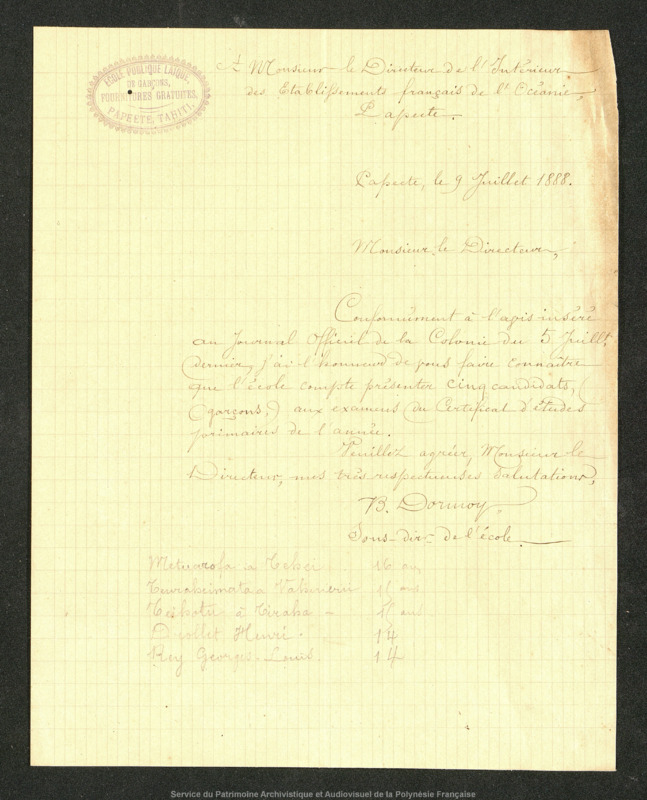 ÉCOLE PUBLIQUE LAÏQUE
DE GARÇONS
FOURNITURES GRATUITES
PAPEETE, TAHITI.
A Monsieur le Directeur de l'Intérieur
des Etablissements français de l'Océanie,
Papeete.
Papeete, le 9 Juillet 1888.
Monsieur le Directeur,
Conformément à l'avis inséré
au Journal Officiel de la Colonie du 5 Juillet
dernier, j'ai l'honneur de vous faire connaître
que l'école compte présenter cinq candidats,
(garçons,) aux examens du Certificat d'études
primaires de l'année.
Veuillez agréer, Monsieur le
Directeur, mes très respectueuses salutations,
B. Dormoy,
Sous-dir- de l'école.
a 16 ans
a ans
à Tiraha - ans
Drollet Henri. 14
Rey Georges-Louis. 14
Service du Patrimoine Archivistique et Audiovisuel de la Polynésie Française